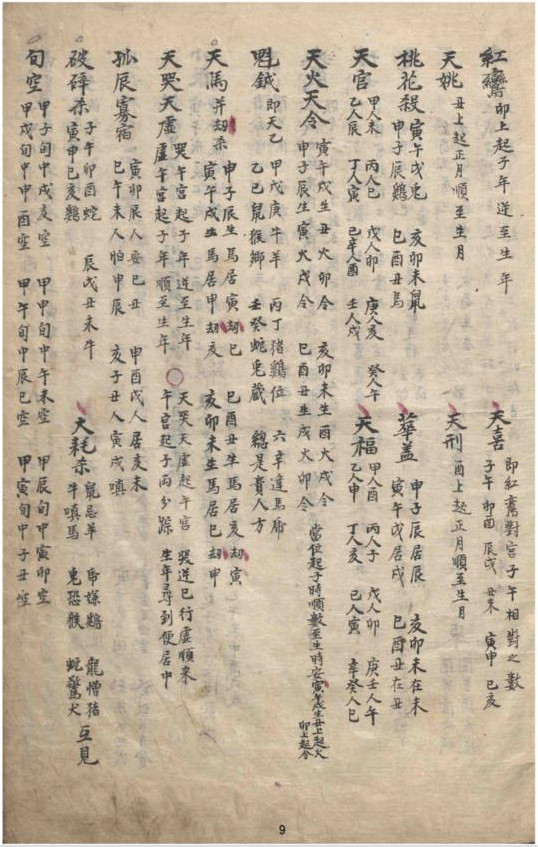 紅鸞 卯上起子年逆至生年
天喜 即紅鸞對宮子午相對之數
子午 卯酉 辰戌 丑未 寅申 巳亥
天姚 丑上起正月順至生月
天刑 酉上起正月順至生月
桃花殺 寅午戌兎 亥卯未鼠
申子辰鷄 巳酉丑馬
華盖 申子辰居辰 亥卯未在未
寅午戌居戌 巳酉丑在丑
天官 甲人未 丙人巳 戊人卯 庚人亥 癸人午
乙人辰 丁人寅 己辛人酉 壬人戌
天福 甲人酉 丙人子 戊人卯 庚壬人午
乙人申 丁人亥 己人寅 辛癸人巳
天火天令 寅午戌生丑火卯令 亥卯未生酉火戌令
申子辰生寅火戌令 巳酉丑生戌火卯令
當位起子時順數至生時安寅午戌生丑上起火
卯上起令
魁鉞 即天乙 甲戊庚牛羊 丙丁猪鷄位 六辛逢馬虎
乙己鼠猴鄉 壬癸蛇兎藏 總是貴人方
天馬并劫杀 申子辰生馬居寅劫巳 巳酉丑生馬居亥劫寅
寅午戌生馬居申劫亥 亥卯未生馬居巳劫申
天哭天虛 哭午宮起子年逆至生年
虛午宮起子年順至生年
天哭天虛起午宮 哭逆巳行虛順來
午宮起子兩分踪 生年尋到便居中
孤辰寡宿 寅卯辰人安巳丑 申酉戌人居亥未
巳午未人怕申辰 亥子丑人寅戌嗔
破碎杀 子午卯酉蛇 辰戌丑未牛
寅申巳亥鷄
大耗杀 鼠忌羊 虎嫌鷄 龍憎猪
牛嗔馬 兎恐猴 蛇驚犬 互見
旬空 甲子旬中戌亥空 甲申旬中午未空 甲辰旬中寅卯空
甲戌旬中申酉空 甲午旬中辰巳空 甲寅旬中子丑空
9